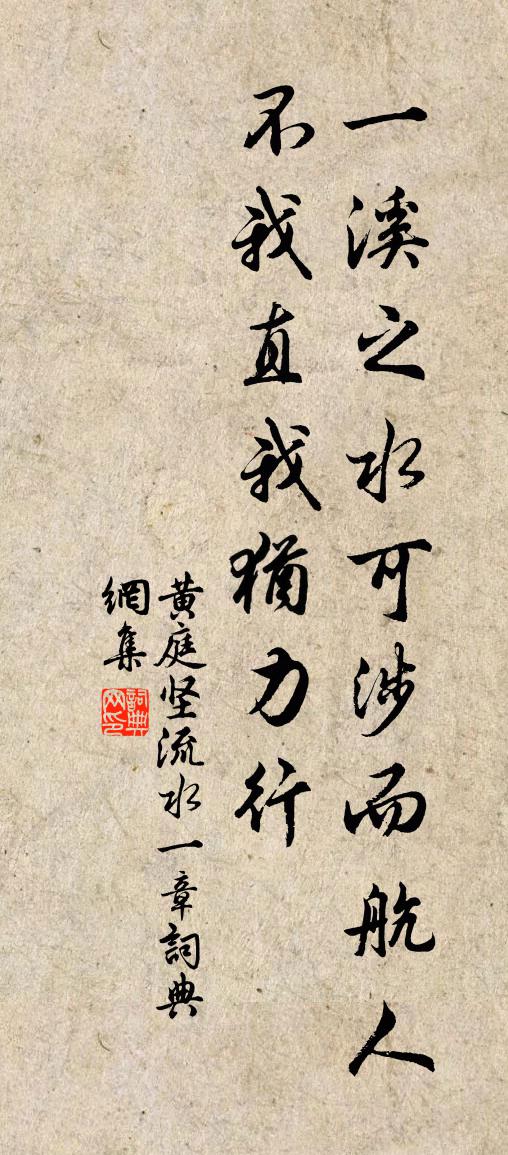 一溪之水可涉而航人
不我直我猶力行
黄庭坚流水一章詞典
網集
詞典
网印